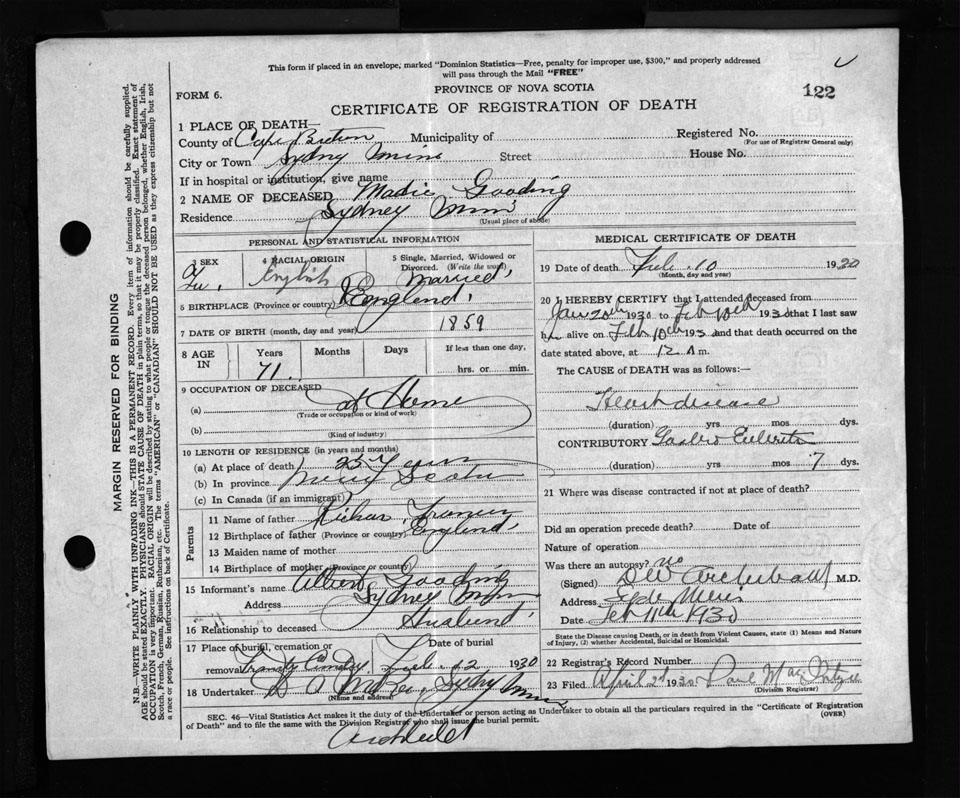 This form if placed in an envelope, marked "Dominion Statistics—Free, penalty for improper use, $300," and properly addressed
will pass through the Mail "FREE"
PROVINCE OF NOVA SCOTIA
122
FORM 6.
CERTIFICATE OF REGISTRATION OF DEATH
1 PLACE OF DEATH—
County of Cape Breton Municipality of Registered No.
(For use of Registrar General only)
City or Town Sydney Mines Street House No.
If in hospital or institution, give name
2 NAME OF DECEASED Madie Gooding
Residence Sydney Mines
(Usual place of abode)
PERSONAL AND STATISTICAL INFORMATION
3 SEX
4 RACIAL ORIGIN English
5 Single, Married, Widowed or
Divorced. (Write the word)
Married
6 BIRTHPLACE (Province or country) England
7 DATE OF BIRTH (month, day and year) 1859
8 AGE IN
Years Months Days If less than one day,
71 hrs. or min.
9 OCCUPATION OF DECEASED
(a) at Home
(Trade or occupation or kind of work)
(b)
(Kind of industry)
10 LENGTH OF RESIDENCE (in years and months)
(a) At place of death 25 Years
(b) In province Nova Scotia
(c) In Canada (if an immigrant)
Parents
11 Name of father Francis
12 Birthplace of father (Province or country) England
13 Maiden name of mother
14 Birthplace of mother (Province or country)
15 Informant's name Albert Gooding
Address Sydney Mines
16 Relationship to deceased Husband
17 Place of burial, cremation or removal Date of burial
Feb 12 1930
18 Undertaker Sydney Mines
(Name and address)
MEDICAL CERTIFICATE OF DEATH
19 Date of death Feb. 10 1930
(Month, day and year)
20 I HEREBY CERTIFY that I attended deceased from
Jan 20th 1930 to Feb 10th 1930 that I last saw
h alive on Feb 10th 193 and that death occurred on
date stated above, at 12 A m.
The CAUSE of DEATH was as follows:—
Heart disease
(duration) yrs mos dys.
CONTRIBUTORY Gastro Enteritis
(duration) yrs mos 7 dys.
21 Where was disease contracted if not at place of death?
Did an operation precede death? Date of
Nature of operation
Was there an autopsy? no
(Signed) Archibald M.D.
Address Syd Mines
Date Feb 11th 1930
State the Disease causing Death, or in death from Violent Causes, state (1) Means and Nature
of Injury, (2) whether Accidental, Suicidal or Homicidal.
22 Registrar's Record Number
23 Filed April 2d 1930
(Division Registrar)
SEC. 46—Vital Statistics Act makes it the duty of the Undertaker or person acting as Undertaker to obtain all the particulars required in the "Certificate of Registration
of Death" and to file the same with the Division Registrar who shall issue the burial permit. (OVER)
MARGIN RESERVED FOR BINDING
N.B.—WRITE PLAINLY WITH UNFADING INK—THIS IS A PERMANENT RECORD. Every item of information should be carefully supplied.
AGE should be stated EXACTLY. PHYSICIANS should STATE CAUSE OF DEATH in plain terms, so that it may be properly classified. Exact statement of
OCCUPATION is very important. RACIAL ORIGIN will be described by stating to what people or tongue the deceased person belonged, whether English, Irish,
Scotch, French, German, Russian, Ruthenian, etc. The terms "AMERICAN" or "CANADIAN" SHOULD NOT BE USED as they express citizenship but not
a race or people. See instructions on back of Certificate.